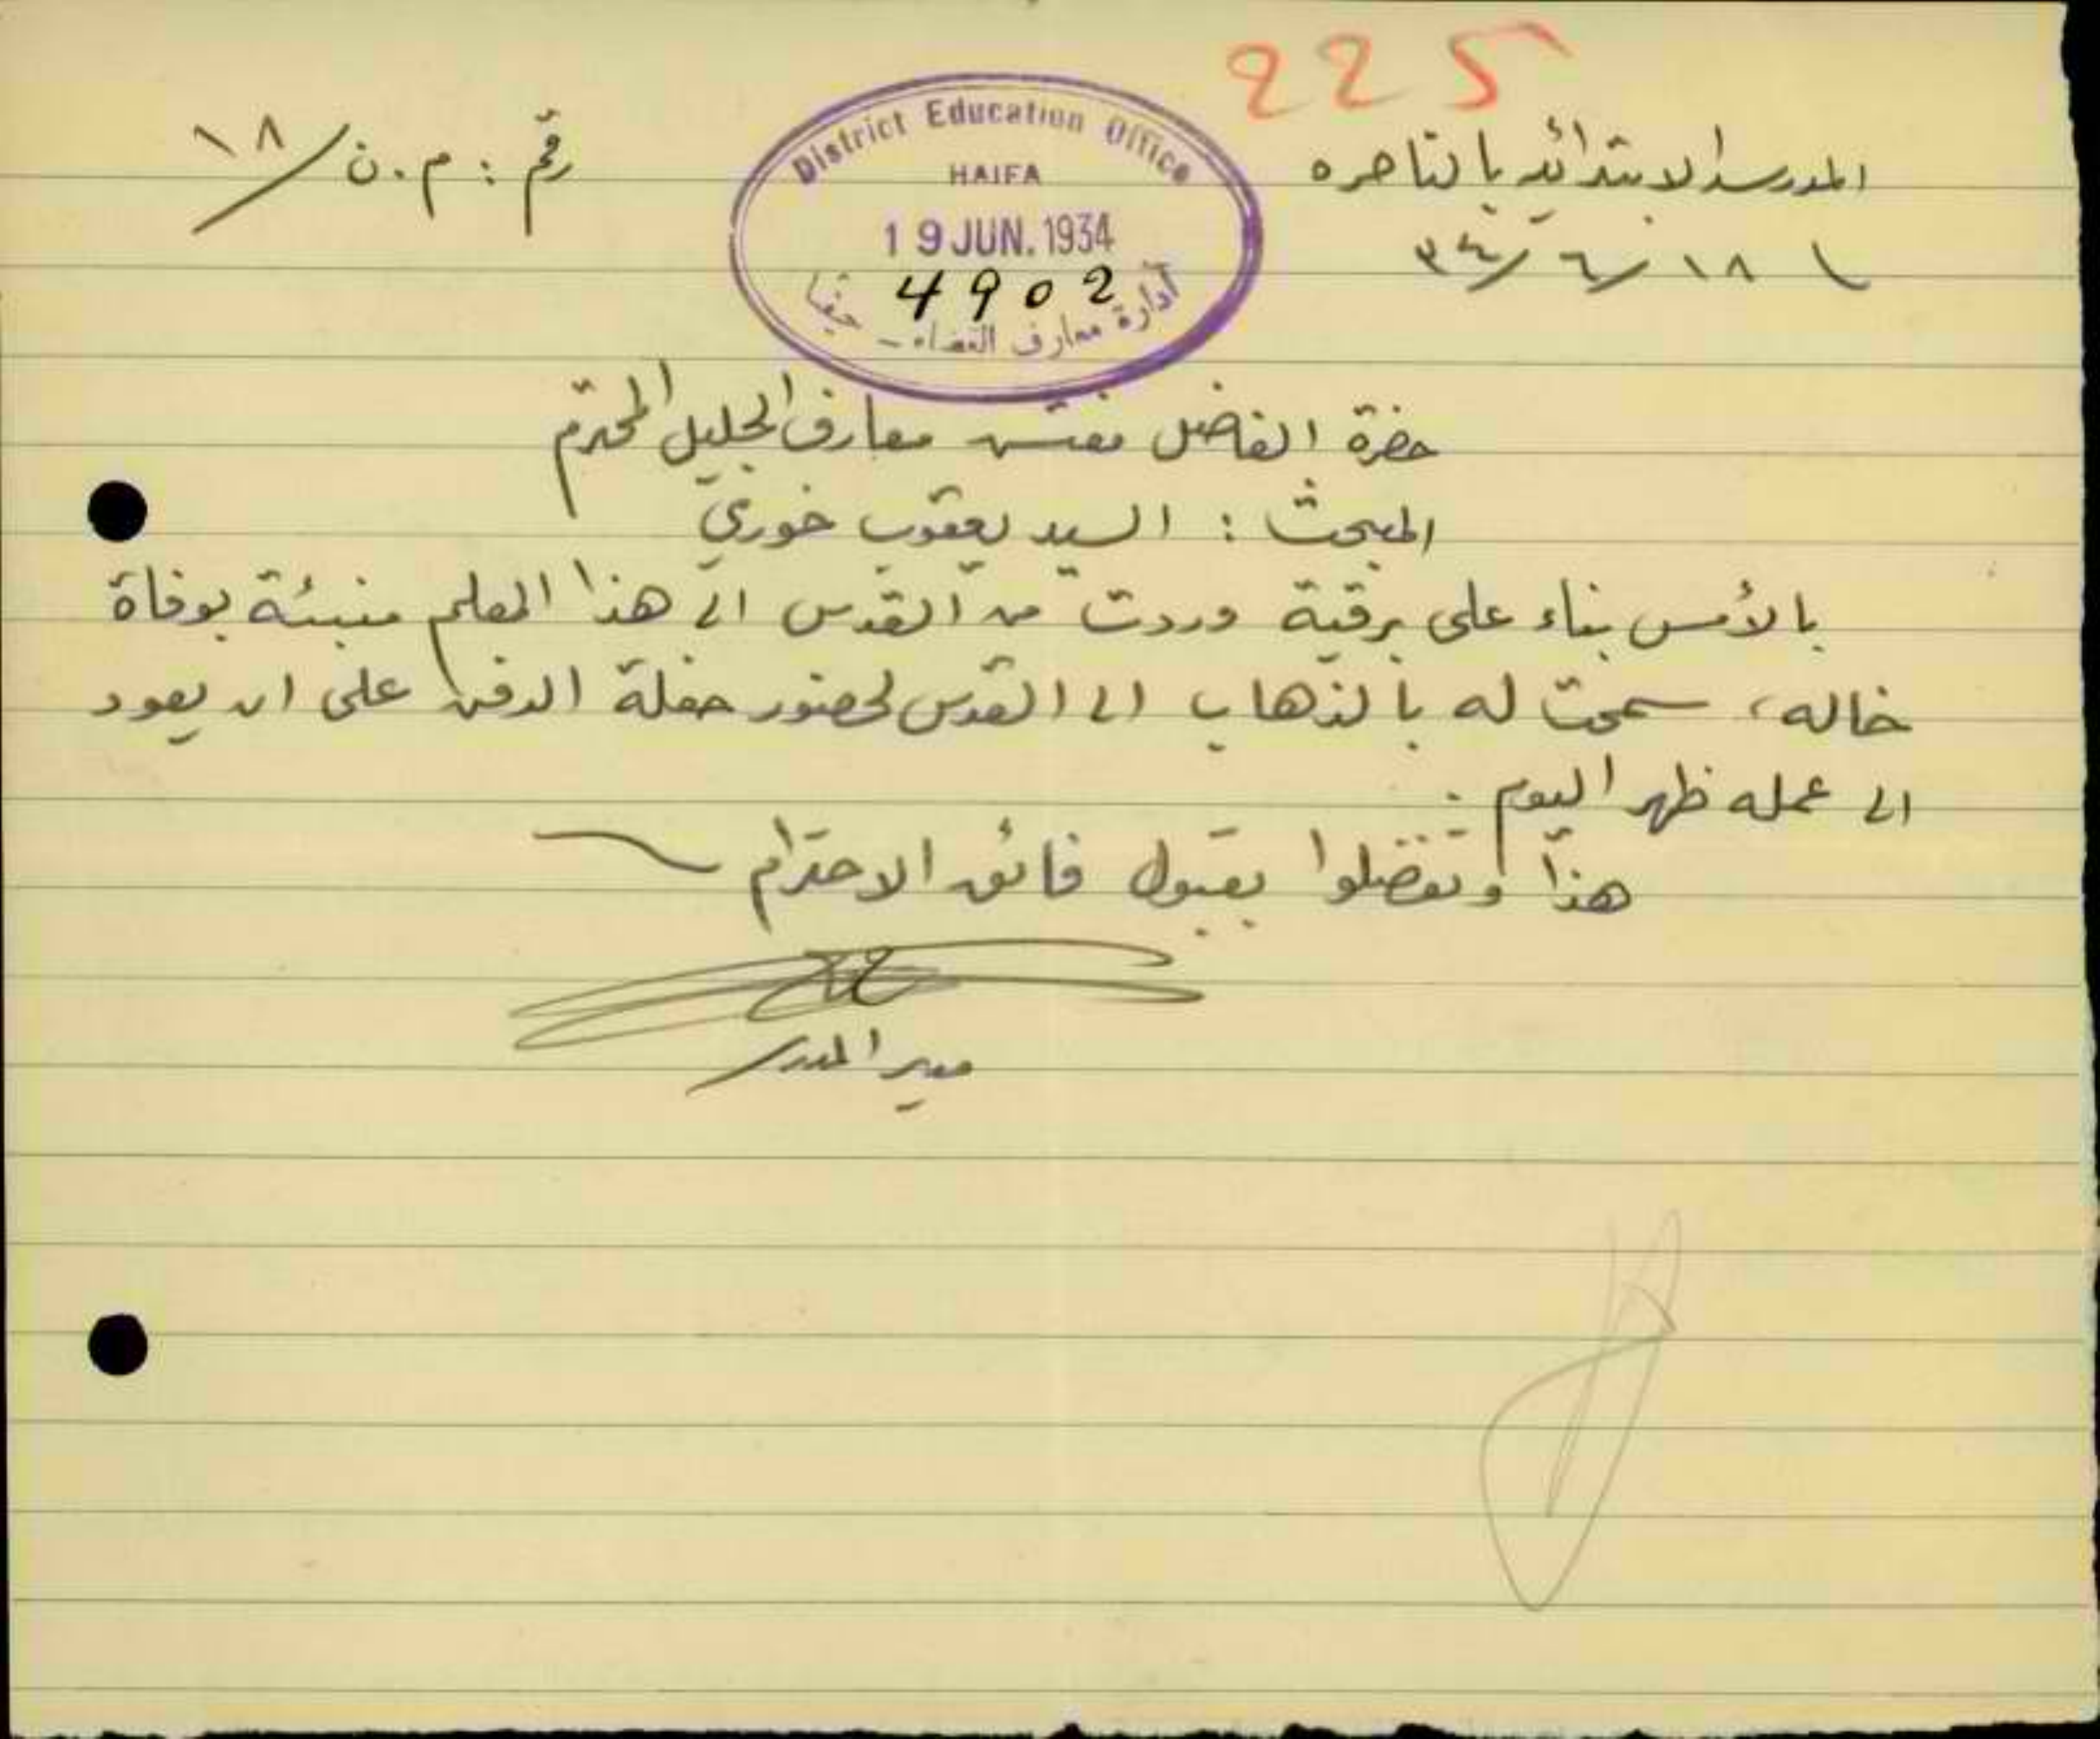 225
المدرسة الابتدائية بالناصره
رقم : م . ن / ١٨
١٨ / ٦ / ٣٤
District Education Office
HAIFA
19 JUN. 1934
4902
ادارة معارف القضاء - حيفا
حضرة الفاضل مفتش معارف الجليل المحترم
المبحث : السيد يعقوب خوري
بالأمس بناء على برقية وردت من القدس الى هذا المعلم منبئة بوفاة
خاله، سمحت له بالذهاب الى القدس لحضور حفلة الدفن على ان يعود
الى عمله ظهر اليوم .
هذا وتفضلوا بقبول فائق الاحترام
مدير المدرسة